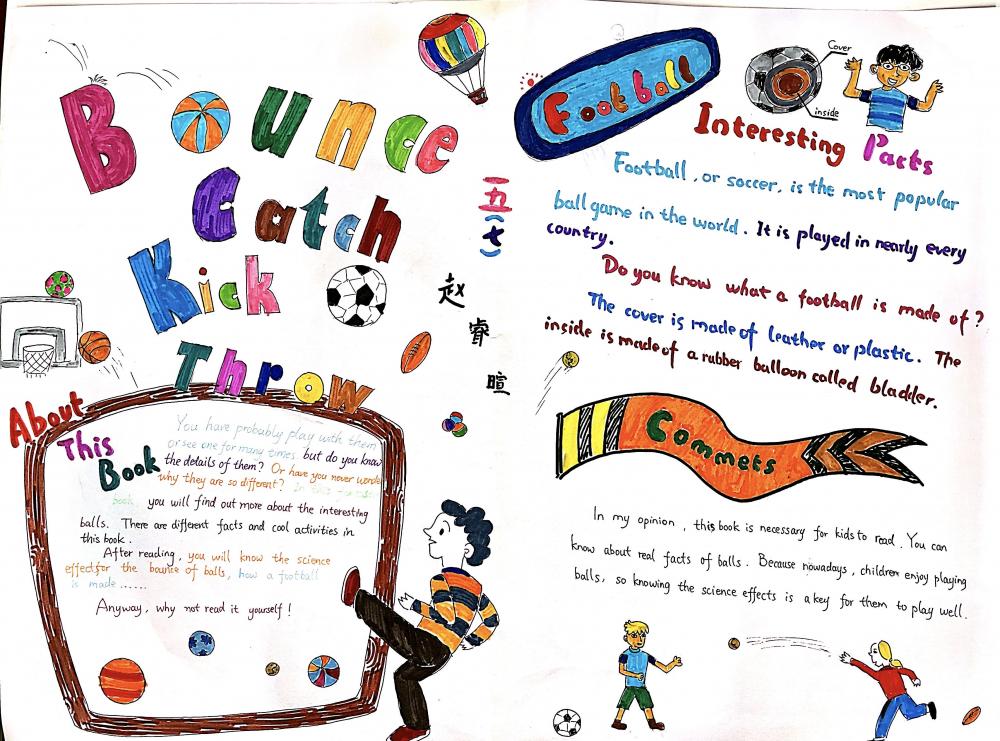 Bounce
Catch
Kick
Throw
About
This
Book
You have probably play with them
or see one for many times. but do you know
the details of them? Or have you never wonder
why they are so different? In this
book, you will find out more about the interesting
balls. There are different facts and cool activities in
this book.
After reading, you will know the science
effects for the bounce of balls, how a football
is made ......
Anyway, why not read it yourself!
五(七)
赵
睿
暄
Football
Cover
inside
Interesting Parts
Football, or soccer, is the most popular
ball game in the world. It is played in nearly every
country.
Do you know what a football is made of?
The cover is made of leather or plastic. The
inside is made of a rubber balloon called bladder.
Commets
In my opinion, this book is necessary for kids to read. You can
know about real facts of balls. Because nowadays, children enjoy playing
balls, so knowing the science effects is a key for them to play well.